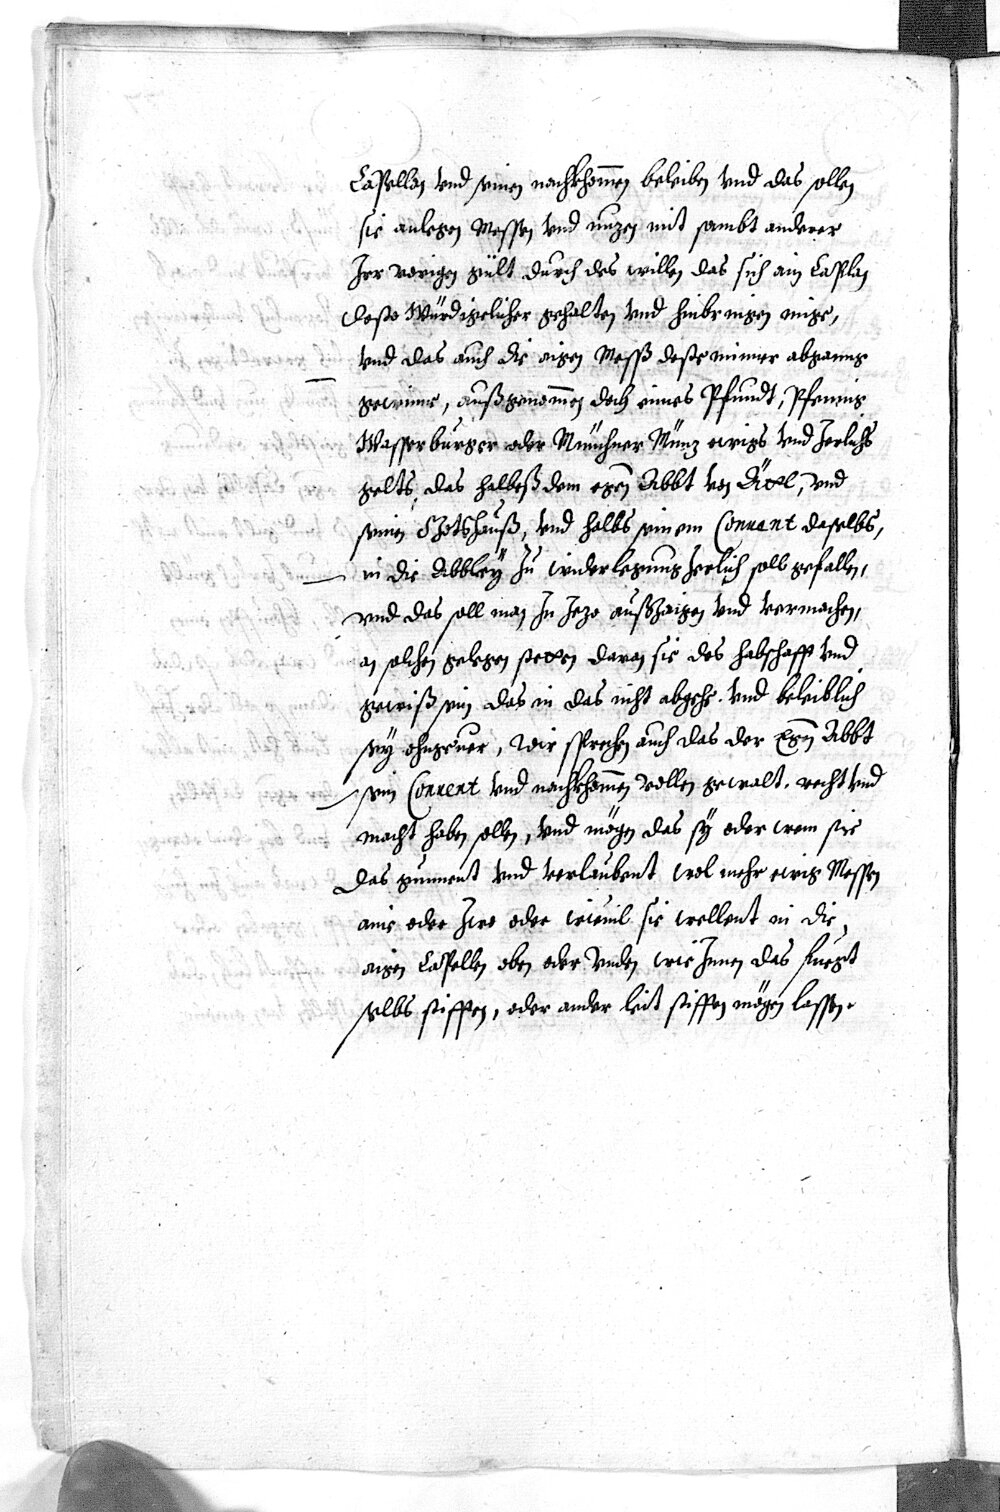 Capellan vnd seinen nachkhomen beleiben vnd das sollen
sie anlegen Messen vnd nuzen mit sambt anderer
Irer vorigen gült durch des willen das sich ain Caplan
desto Würdigelicher gehalten vnd hinbringen müge,
vnd das auch die aigen Mess deste nimer abganng
gewinne, außgenomen doch eines Pfundt, Pfennig
Wasserburger oder Münchner Münz ewigs vnd Jerlichs
gelts, das halbeß dem egen Abbt von Ätel, vnd
seinen Gotshauß, vnd halbs seinem Conuent daselbs,
in die Abbtey zu widerlegung Jerlich soll gefallen,
vnd das soll man In Jezo außzaigen vnd vermachen,
an solchen gelegen steten daran sie des habschafft vnd
gewiß sein das in das nicht abgehe. vnd beleiblich
sey ohngeuer, Wir sprechen auch das der Egen Abbt
sein Conuent vnd nachkhomen vollen gewalt. recht vnd
macht haben sollen, vnd mögen das sy oder wem sie
das gunnent vnd verlaubent wol mehr ewig Messen
aine oder zwo oder wieuil sie wellent in die
aigen Capellen oben oder vnden wie Innen das fuegt
selbs stifften, oder ander leüt stifften mögen lassen.